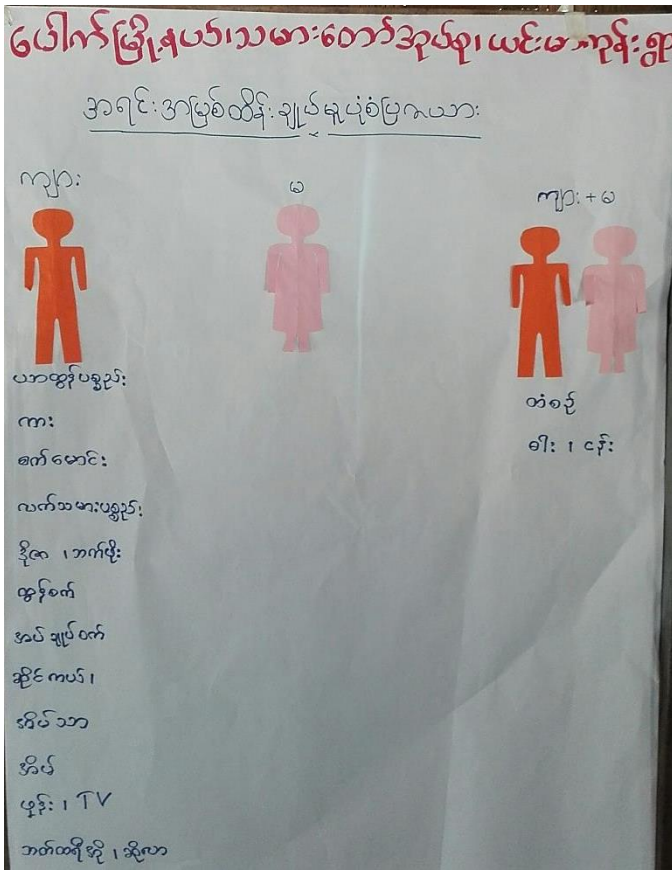 ပေါက်မြို့နယ်၊သမားတော်အုပ်စု၊ယင်းမာကုန်းရွာ
အရင်းအမြစ်ထိန်းချုပ်မှုပုံစံပြဇယား
ကျား
မ
ကျား+မ
ယာထွန်ပစ္စည်း
ကား
စက်မောင်း
လက်သမားပစ္စည်း
ဒိုဇာ၊ဘက်ဖိုး
ထွန်စက်
အပ်ချုပ်စက်
ဆိုင်ကယ်၊
အိမ်သာ
အိမ်
ဖုန်း၊TV
ဘတ်ထရီအို၊ဆိုလာ
တံစဉ်
ဓါး၊ငန်း